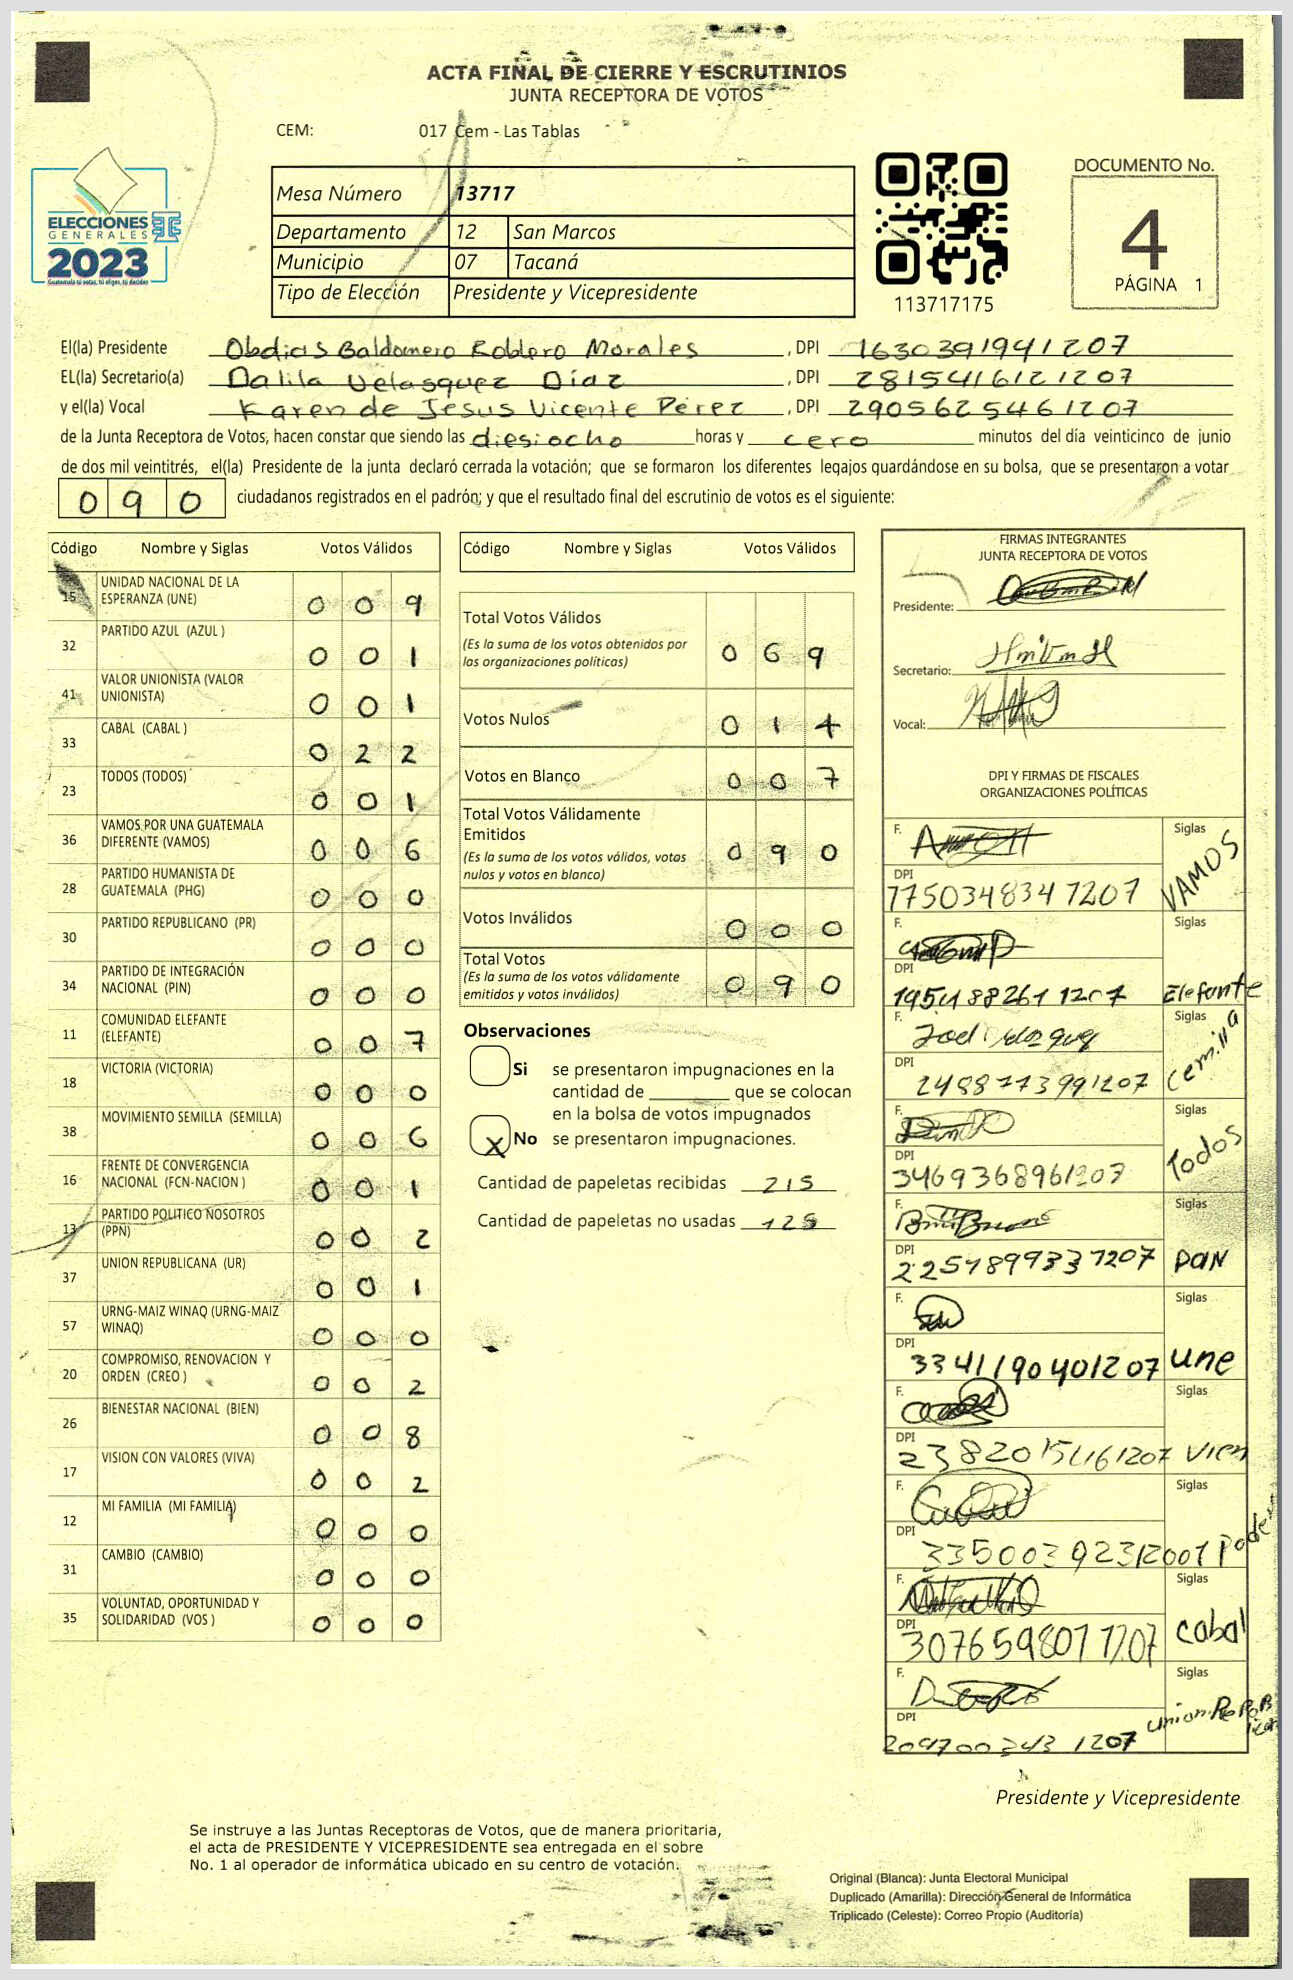 ACTA FINAL DE CIERRE Y ESCRUTINIOS
JUNTA RECEPTORA DE VOTOS
CEM: 017 Cem - Las Tablas
ELECCIONES
GENERALES
2023
Guatemala tú votas, tú eliges, tú decides
Mesa Número 13717
Departamento 12 San Marcos
Municipio 07 Tacaná
Tipo de Elección Presidente y Vicepresidente
113717175
DOCUMENTO No.
4
PÁGINA 1
El(la) Presidente Obdias Baldomero Roblero Morales, DPI 1630391941207
EL(la) Secretario(a) Dalila Velasquez Díaz, DPI 2815416121207
y el(la) Vocal Karen de Jesus Vicente Pérez, DPI 2905625461207
de la Junta Receptora de Votos, hacen constar que siendo las diesiocho horas y cero minutos del día veinticinco de junio
de dos mil veintitrés, el(la) Presidente de la junta declaró cerrada la votación; que se formaron los diferentes legajos guardándose en su bolsa, que se presentaron a votar
090 ciudadanos registrados en el padrón; y que el resultado final del escrutinio de votos es el siguiente:
Código Nombre y Siglas Votos Válidos
15 UNIDAD NACIONAL DE LA ESPERANZA (UNE) 0 0 9
32 PARTIDO AZUL (AZUL ) 0 0 1
41 VALOR UNIONISTA (VALOR UNIONISTA) 0 0 1
33 CABAL (CABAL ) 0 2 2
23 TODOS (TODOS) 0 0 1
36 VAMOS POR UNA GUATEMALA DIFERENTE (VAMOS) 0 0 6
28 PARTIDO HUMANISTA DE GUATEMALA (PHG) 0 0 0
30 PARTIDO REPUBLICANO (PR) 0 0 0
34 PARTIDO DE INTEGRACIÓN NACIONAL (PIN) 0 0 0
11 COMUNIDAD ELEFANTE (ELEFANTE) 0 0 7
18 VICTORIA (VICTORIA) 0 0 0
38 MOVIMIENTO SEMILLA (SEMILLA) 0 0 6
16 FRENTE DE CONVERGENCIA NACIONAL (FCN-NACION ) 0 0 1
13 PARTIDO POLITICO NOSOTROS (PPN) 0 0 2
37 UNION REPUBLICANA (UR) 0 0 1
57 URNG-MAIZ WINAQ (URNG-MAIZ WINAQ) 0 0 0
20 COMPROMISO, RENOVACION Y ORDEN (CREO ) 0 0 2
26 BIENESTAR NACIONAL (BIEN) 0 0 8
17 VISION CON VALORES (VIVA) 0 0 2
12 MI FAMILIA (MI FAMILIA) 0 0 0
31 CAMBIO (CAMBIO) 0 0 0
35 VOLUNTAD, OPORTUNIDAD Y SOLIDARIDAD (VOS ) 0 0 0
Código Nombre y Siglas Votos Válidos
Total Votos Válidos
(Es la suma de los votos obtenidos por
las organizaciones políticas) 0 6 9
Votos Nulos 0 1 4
Votos en Blanco 0 0 7
Total Votos Válidamente
Emitidos
(Es la suma de los votos válidos, votos
nulos y votos en blanco) 0 9 0
Votos Inválidos 0 0 0
Total Votos
(Es la suma de los votos válidamente
emitidos y votos inválidos) 0 9 0
Observaciones
Si se presentaron impugnaciones en la
cantidad de ________ que se colocan
en la bolsa de votos impugnados
X No se presentaron impugnaciones.
Cantidad de papeletas recibidas 215
Cantidad de papeletas no usadas 125
FIRMAS INTEGRANTES
JUNTA RECEPTORA DE VOTOS
Presidente:
Secretario:
Vocal:
DPI Y FIRMAS DE FISCALES
ORGANIZACIONES POLÍTICAS
F. Siglas
DPI 1775034834 1207 VAMOS
F. Siglas
DPI Elefante
F. Siglas
DPI 2488773991207 Cemilla
F. Siglas
DPI 3469368961207 Todos
F. Siglas
DPI 2251899331207 PAN
F. Siglas
DPI 3341190401207 Une
F. Siglas
DPI Vien
F. Siglas
DPI Poder
F. Siglas
DPI 3076598011207 Cabal
F. Siglas
DPI Union Republican
Presidente y Vicepresidente
Se instruye a las Juntas Receptoras de Votos, que de manera prioritaria,
el acta de PRESIDENTE Y VICEPRESIDENTE sea entregada en el sobre
No. 1 al operador de informática ubicado en su centro de votación.
Original (Blanca): Junta Electoral Municipal
Duplicado (Amarilla): Dirección General de Informática
Triplicado (Celeste): Correo Propio (Auditoría)